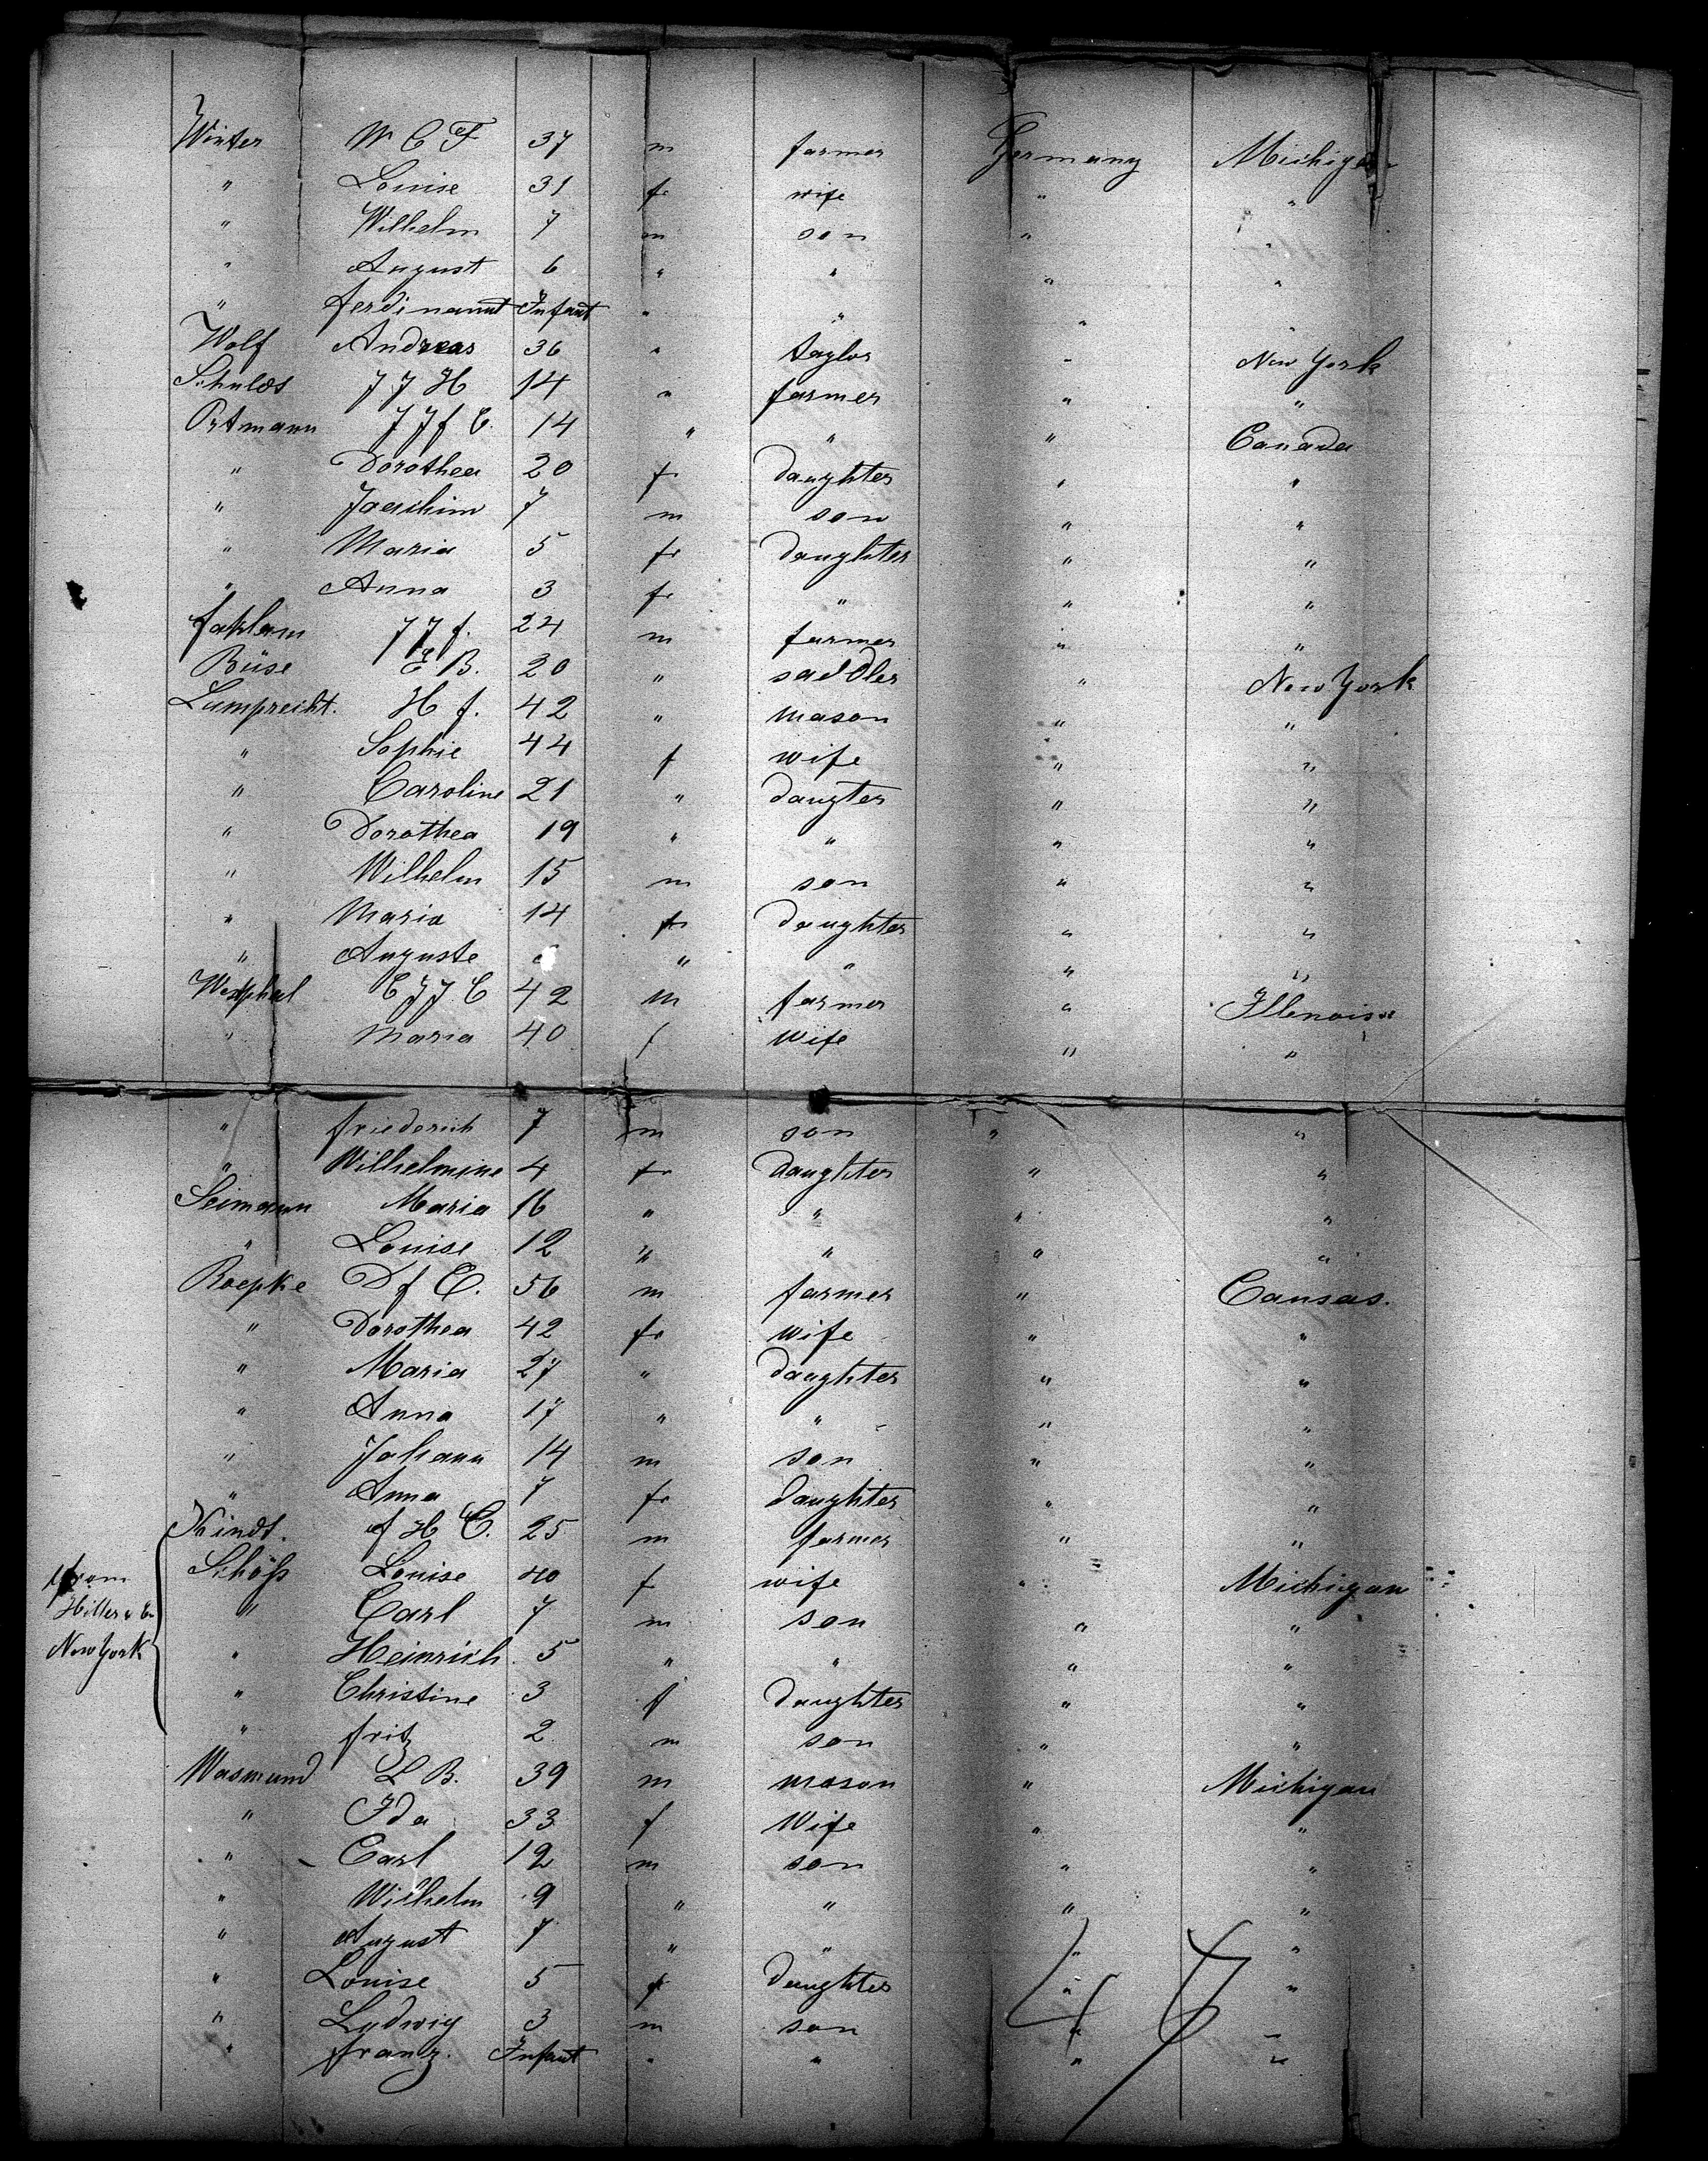 Winter W C F 37 m farmer Germany Michigan
" Louise 31 f wife " "
" Wilhelm 7 m son " "
" August 6 " " " "
" Ferdinannt Infant " " " "
Wolf Andreas 36 " taylor " New York
J J H 14 " farmer " "
J J F C. 14 " " " Canada
" Dorothea 20 f daughter " "
" Joachim 7 m son " "
" Maria 5 f daughter " "
" Anna 3 f " " "
J J F. 24 m farmer " "
Büse E B. 20 " saddler " New York
Lumprecht. H F. 42 " mason " "
" Sophie 44 f wife " "
" Caroline 21 " daugter " "
" Dorothea 19 " " " "
" Wilhelm 15 m son " "
" Maria 14 f daughter " "
" Auguste " " " "
Westphal C J J C 42 m farmer " Illenois
" Maria 40 f wife " "
" Friederich 7 m son " "
" Wilhelmine 4 f daughter " "
Seimann Maria 16 " " " "
" Louise 12 " " " "
Roepke D F C. 56 m farmer " Cansas.
" Dorothea 42 f wife " "
" Maria 27 " daughter " "
" Anna 17 " " " "
" Johann 14 m son " "
" Anna 7 f daughter " "
Kindt. F H C. 25 m farmer " "
from Louise 40 f wife " Michigan
Hiller & Co " Carl 7 m son " "
New York " Heinrich 5 " " " "
" Christine 3 f daughter " "
" Fritz 2 m son " "
Wasmund L B. 39 m mason " Michigan
" Ida 33 f Wife " "
" Carl 12 m son " "
" Wilhelm 9 " " " "
" August 7 " " " "
" Louise 5 f daughter " "
" Ludwig 3 m son " "
" Franz. Infant " " " "
47